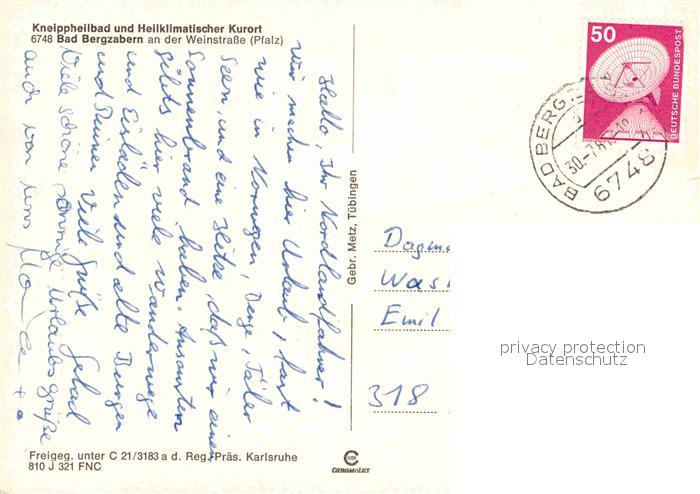 Kneippheilbad und Heilklimatischer Kurort
6748 Bad Bergzabern an der Weinstraße (Pfalz)
Hallo, Ihr Nordlandfahrer!
Wir machen hier Urlaub, fast
wie in Norwegen, Berge, Täler
Seen, und eine Hitze, daß wir einen
Sonnenbrand haben. Ansonsten
gibts hier viele Wanderwege
und Eisläden und alte Burgen
und Ruinen Viele Grüße
Viele schöne sonnige Urlaubsgrüße
auch von uns
Gebr. Metz, Tübingen
50
DEUTSCHE BUNDESPOST
BAD BERG
30.-7.8
6748
Dagm
Was
Emil
318
privacy protection
Datenschutz
Freigeg. unter C 21/3183 a d. Reg.-Präs. Karlsruhe
810 J 321 FNC
CHROMOLUX